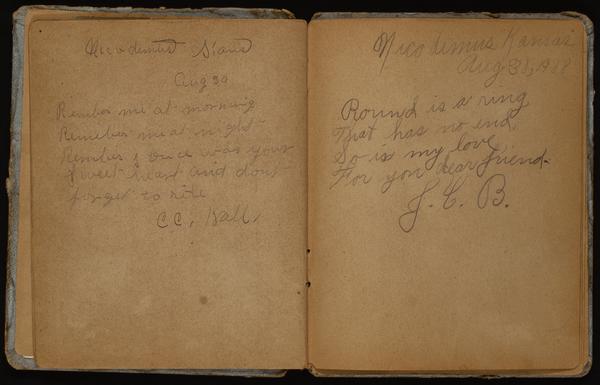 Nicodemus
Aug 30
Remember me at morning
Remeber me at night
Remeber I once was your
sweet heart and dont
forget to rite
C.C. Hall.
Nicodemus Kansas
Aug 31, 1918
Round is a ring
That has no end,
So is my love,
For you dear friend.
J. C. B.